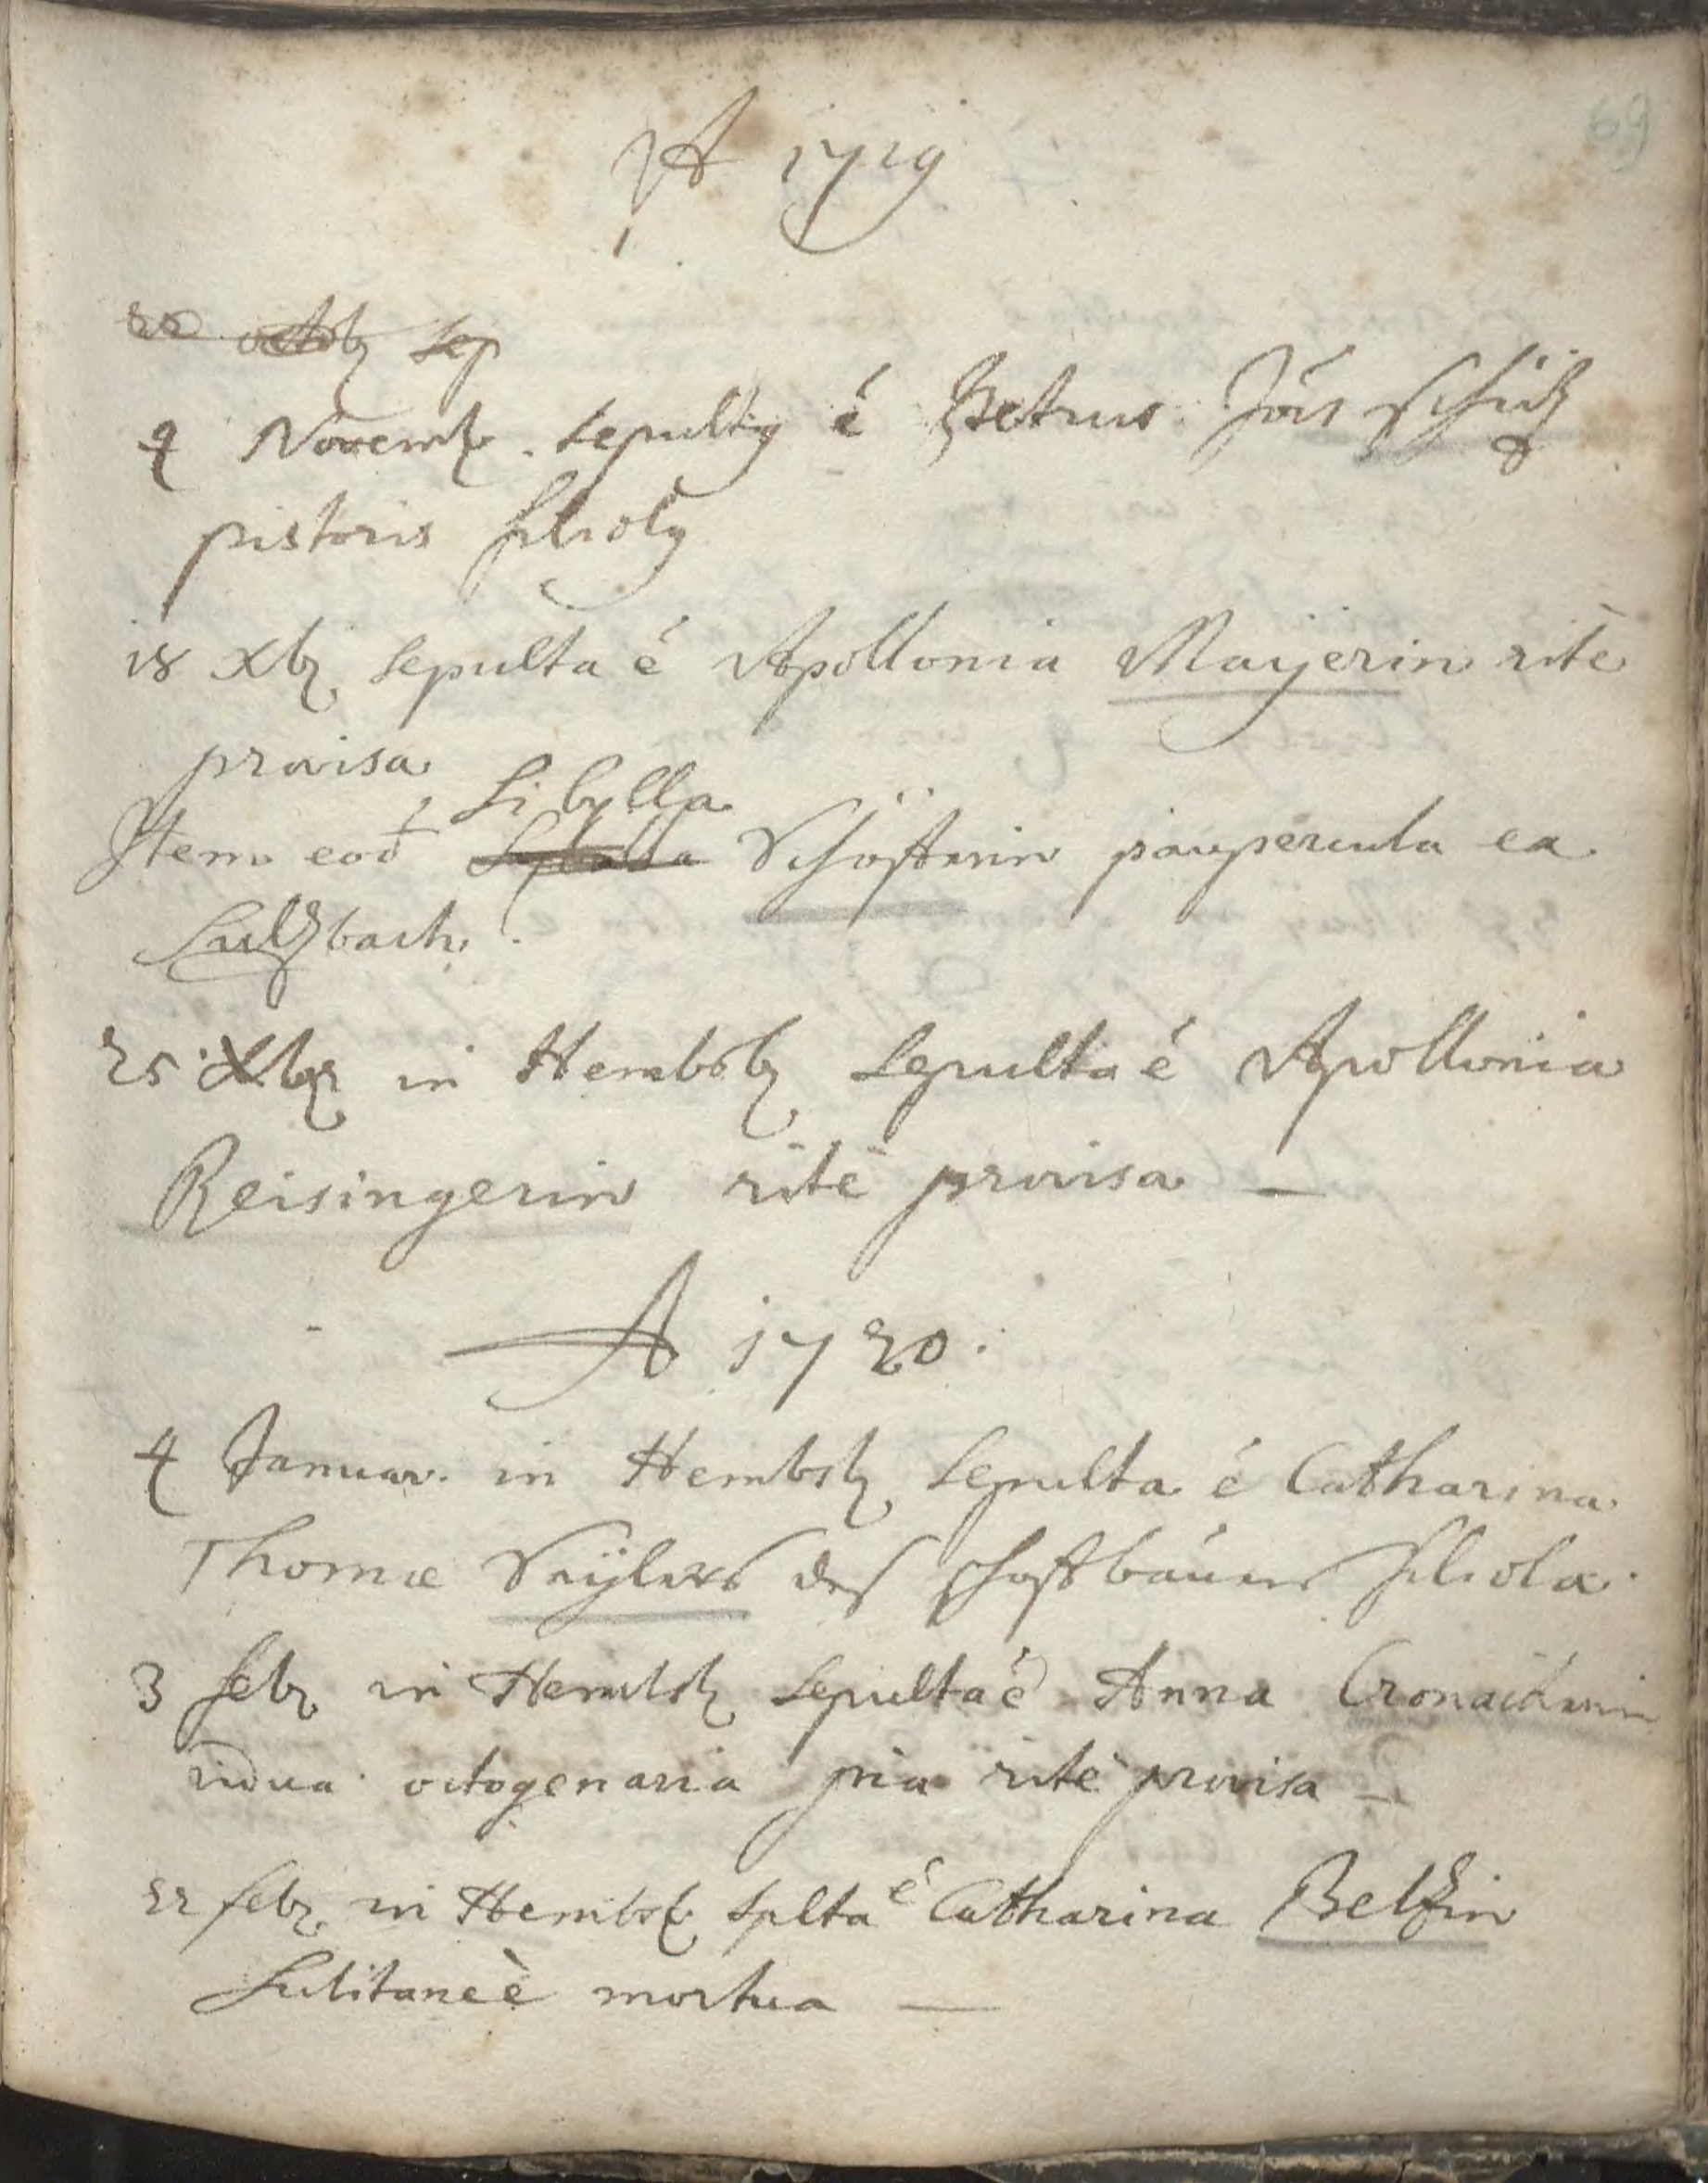 69
A 1719
22 octob sep
4 Novemb. sepultg ē Petrus Jois Schüz
pistoris filiolg
18 Xbr sepulta ē Apollonia Maÿerin rite
provisa
Sibylla
Item eod Schösterin paupercula ex
Sulzbach.
25 Xbr in Hembsb sepulta ē Apollonia
Reisingerin rite provisa —
A 1720.
4 Januar. in Hembsb sepulta ē Catharina
Thomæ Saÿlers des filiola.
3 febr in Hembsb sepulta ē Anna Cronacherin
vidua octogenaria pia rite provisa —
22 febr. in Hembsb splta ē Catharina Belzin
Subitaneè mortua —